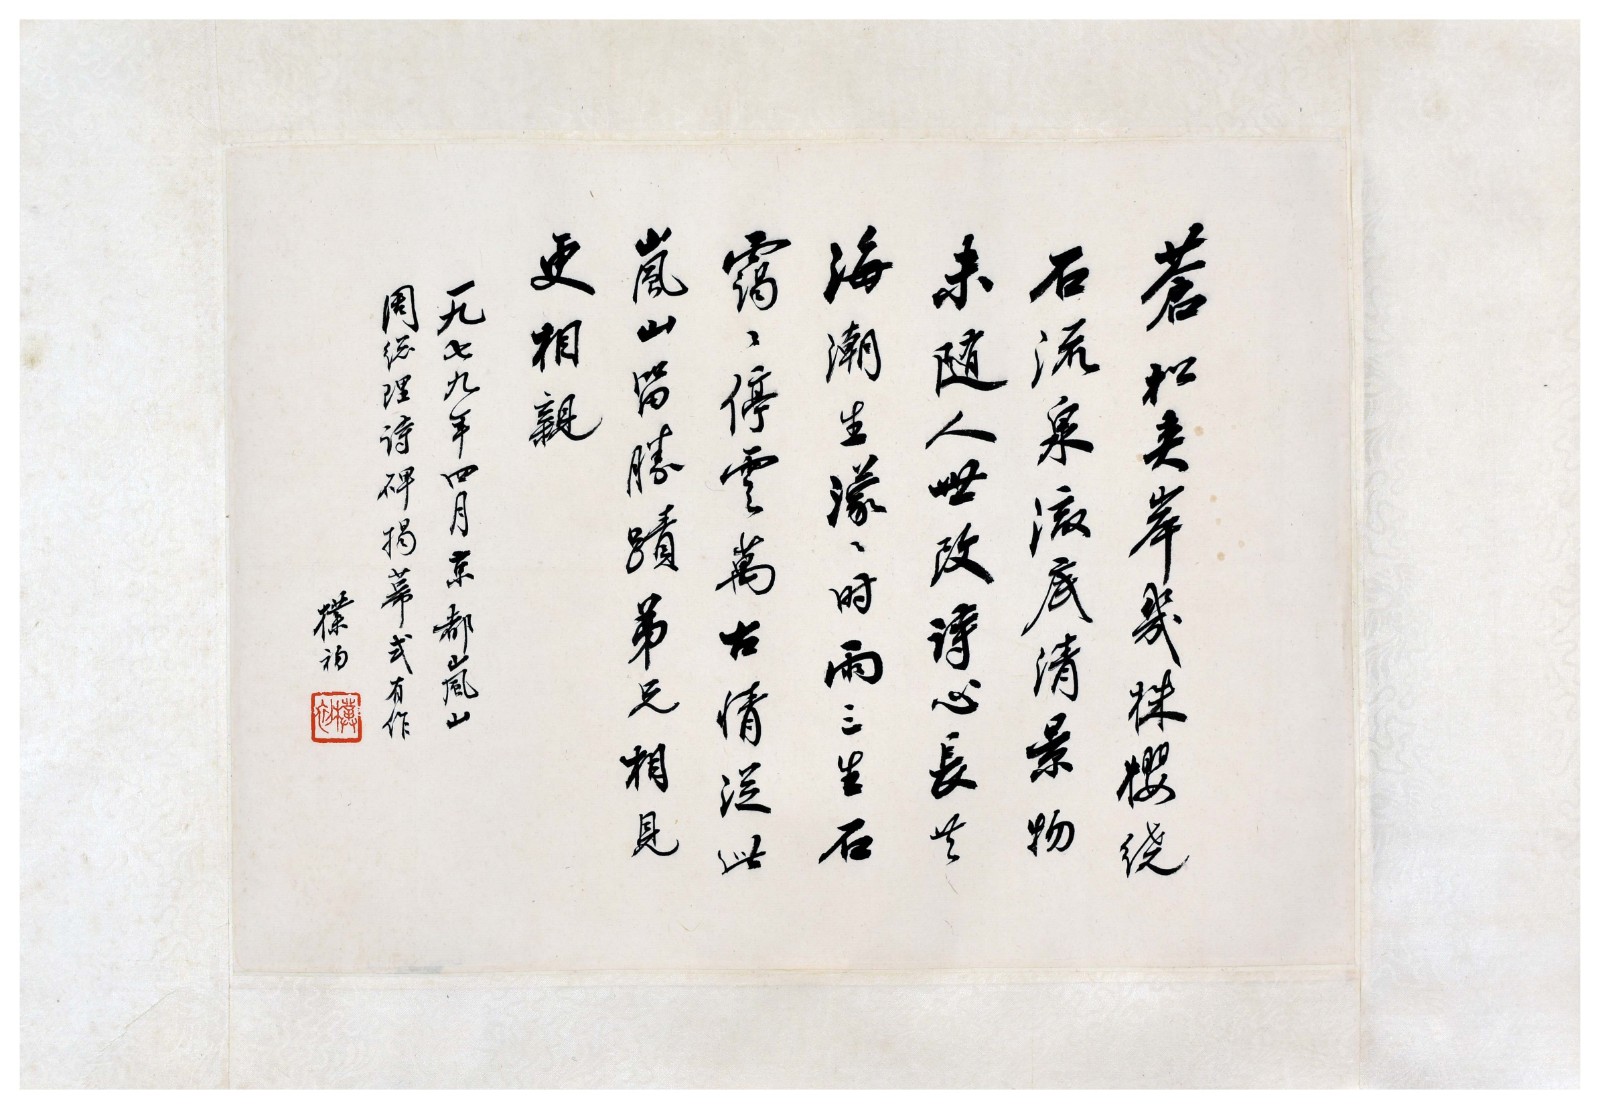 蒼松夾岸幾株櫻繞
石流泉澈底清景物
未随人世改詩心長共
海潮生濛〻时雨三生石
靄〻停雲萬古情從此
嵐山留勝蹟弟兄相見
更相親
一九七九年四月京都嵐山
周総理詩碑揭幕式有作
樸初
樸初